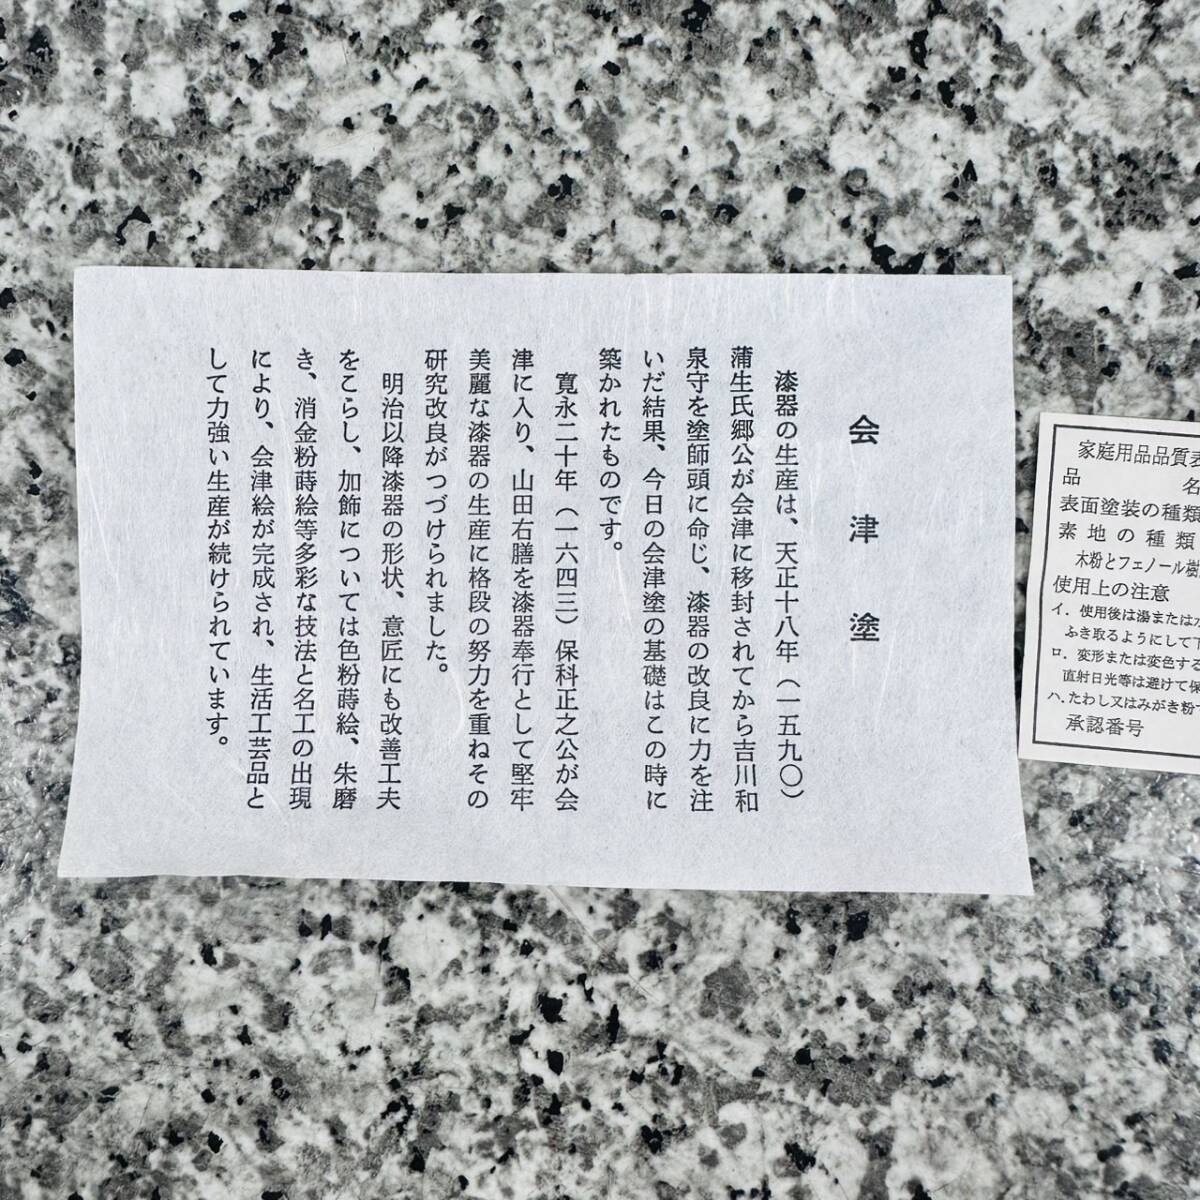 会津塗
漆器の生産は、天正十八年（一五九〇）
蒲生氏郷公が会津に移封されてから吉川和
泉守を塗師頭に命じ、漆器の改良に力を注
いだ結果、今日の会津塗の基礎はこの時に
築かれたものです。
寛永二十年（一六四三）保科正之公が会
津に入り、山田右膳を漆器奉行として堅牢
美麗な漆器の生産に格段の努力を重ねその
研究改良がつづけられました。
明治以降漆器の形状、意匠にも改善工夫
をこらし、加飾については色粉蒔絵、朱磨
き、消金粉蒔絵等多彩な技法と名工の出現
により、会津絵が完成され、生活工芸品と
して力強い生産が続けられています。
家庭用品品質表
品名
表面塗装の種類
素地の種類
木粉とフェノール樹
使用上の注意
イ．使用後は湯または水
ふき取るようにして下
ロ．変形または変色する
直射日光等は避けて保
ハ．たわし又はみがき粉で
承認番号